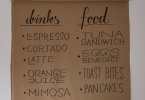 drinks
• ESPRESSO
• CORTADO
• LATTE
• ORANGE
JUICE
• MIMOSA
food
• TUNA
SANDWICH
• EGGS
BENEDICT
• TOAST BITES
• PANCAKES